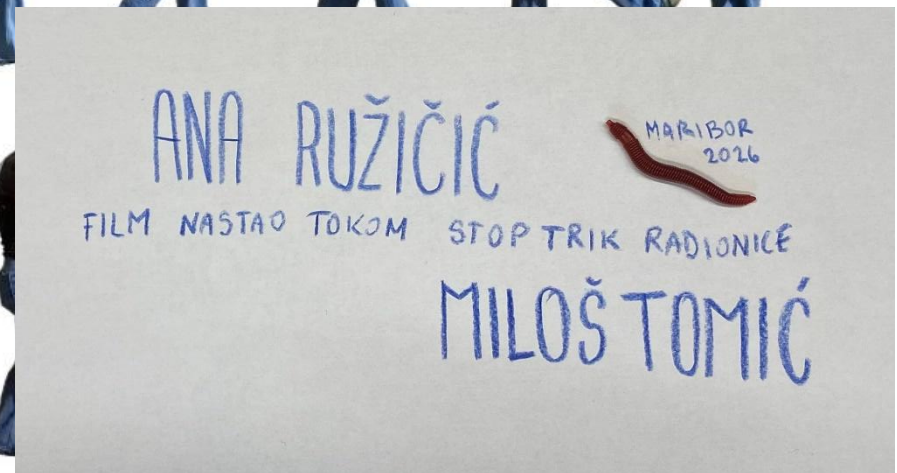 ANA RUŽIČIĆ
MARIBOR
2026
FILM NASTAO TOKOM STOP TRIK RADIONICE
MILOŠ TOMIĆ